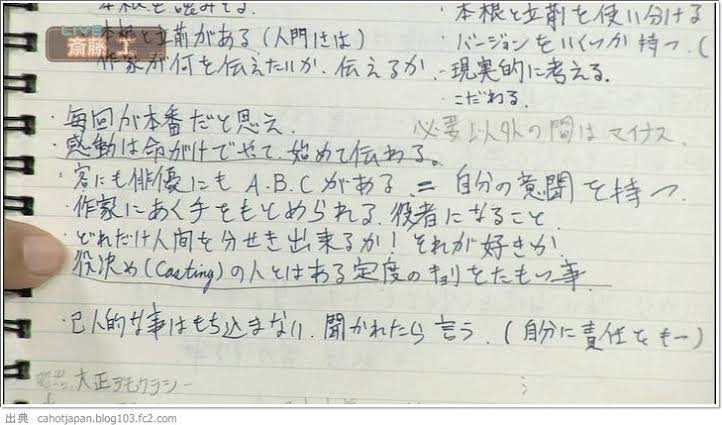 LIVE
斎藤 工
・本根と立前を使い分ける
本根と立前がある(人間には)
・バージョンをいくつか持つ.(
作家が何を伝えたいか、伝えるか.
・現実的に考える.
・こだわる.
・毎回が本番だと思え.
必要以外の間はマイナス.
・感動は命がけでやって、始めて伝わる。
・客にも俳優にもA.B.Cがある = 自分の意聞を持つ.
・作家にあく手をもとめられる.役者になること.
・どれだけ人間を分せき出来るか!それが好きか.
・役決め(Casting)の人とはある定度のキョリをたもつ事.
・己人的な事はもち込まない.聞かれたら言う.(自分に責任をもつ)
大正デモクラシー
出典 cahotjapan.blog103.fc2.com